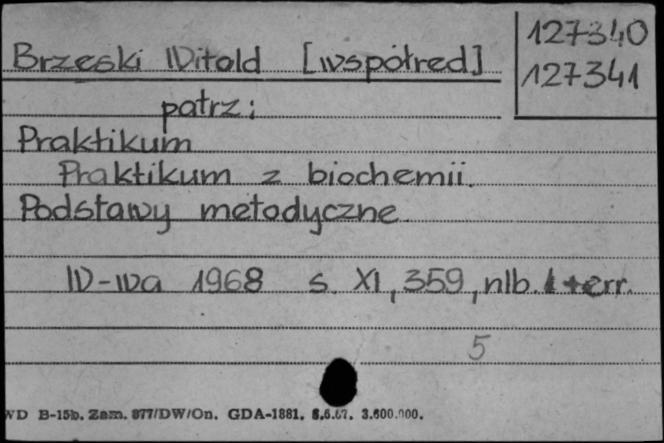 127340
Brzeski Witold [współred]
127341
patrz:
Praktikum
Praktikum z biochemii.
Podstawy metodyczne.
W-wa 1968 s. XI, 359, nlb. 1+err.
5
WD B-15b. Zam. 877/DW/On. GDA-1881. 6.6.67. 3.600.000.